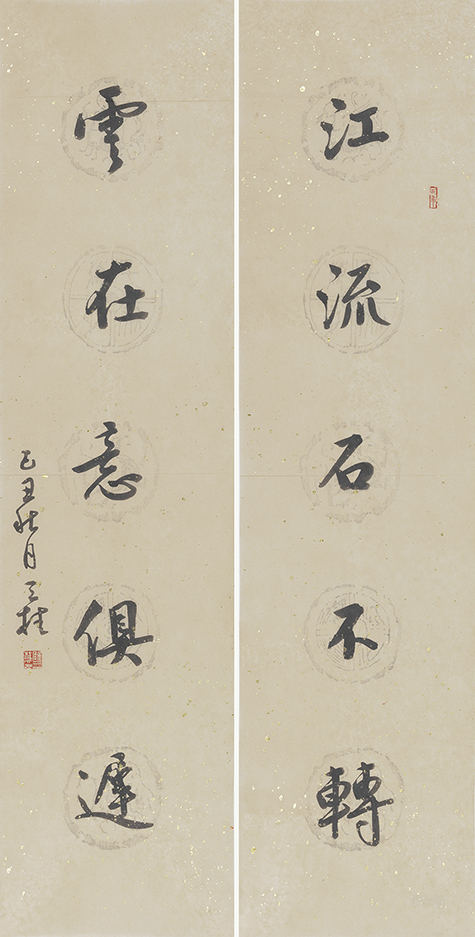 江流石不轉
雲在意俱遲
己丑秋月